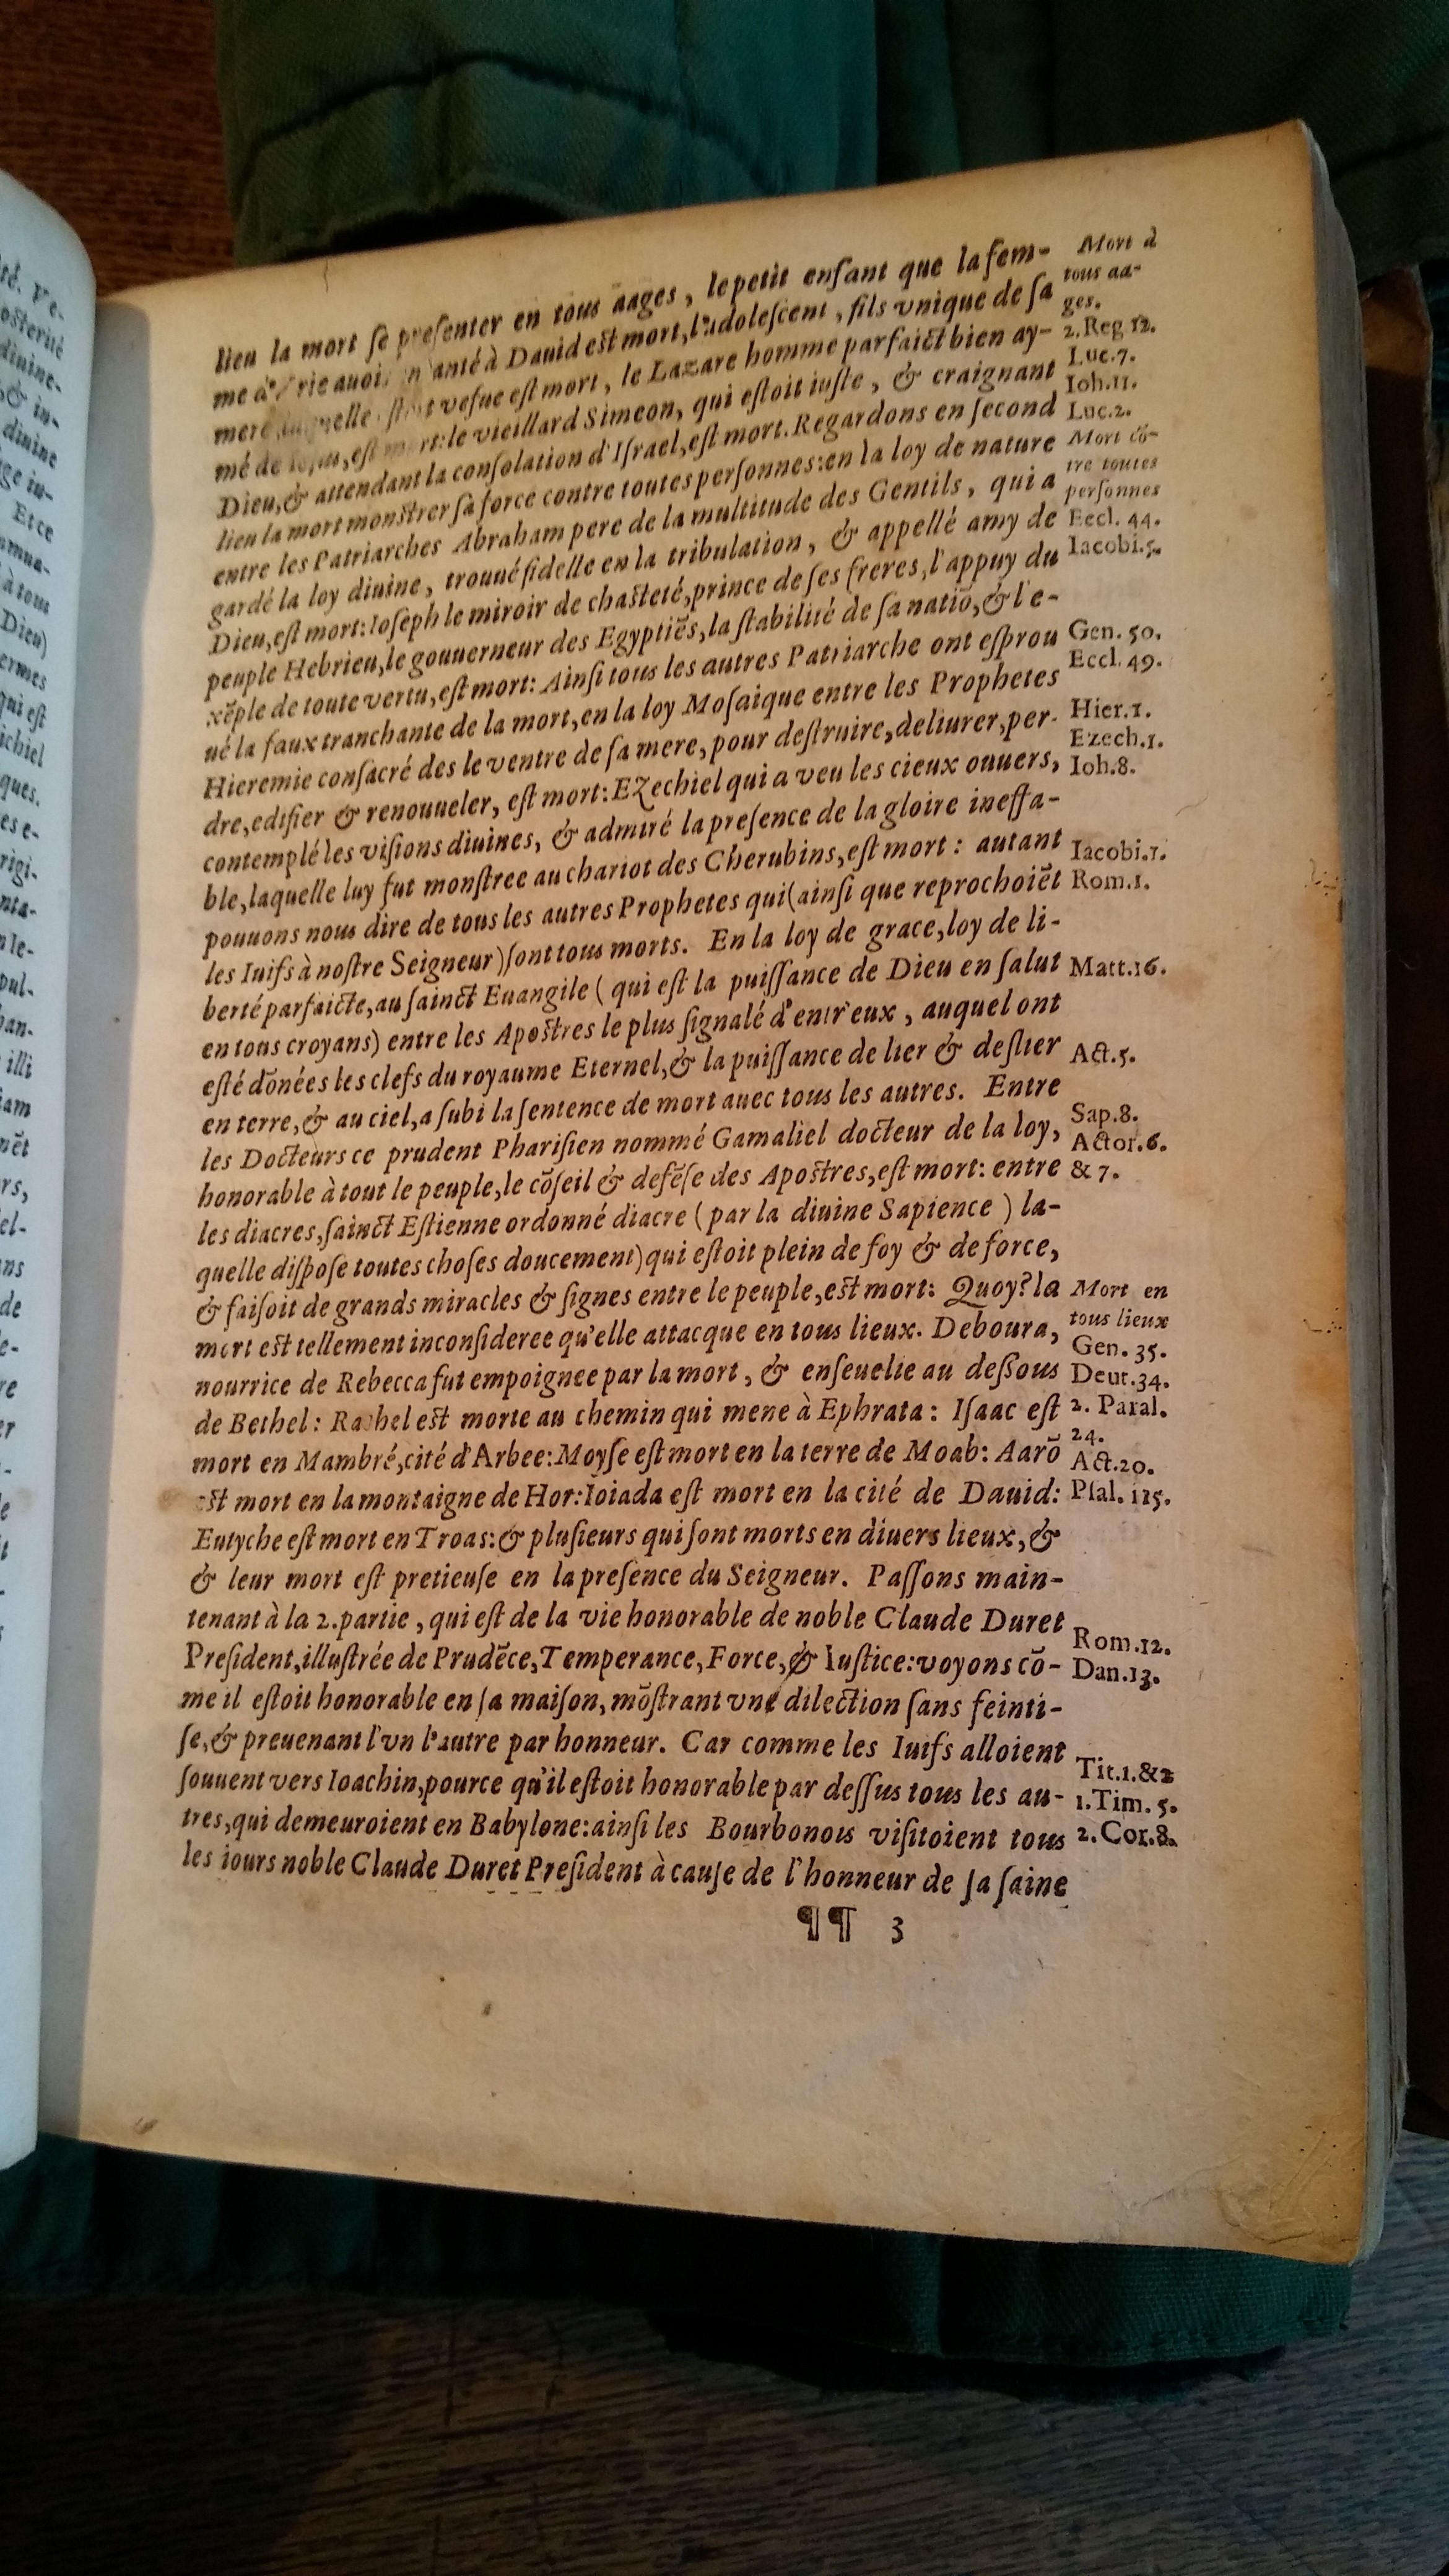 lieu la mort ſe preſenter en tous aages, le petit enfant que la fem-
me auoi anté à Dauid est mort, l'adoleſcent, fils vnique de ſa
mere vefue eſt mort, le Lazare homme parfaict bien ay-
mé de eſt mort: le vieillard Simeon, qui eſtoit iuſte, & craignant
Dieu, & attendant la conſolation d'Iſrael, eſt mort. Regardons en ſecond
lieu la mort monſtrer ſa force contre toutes perſonnes: en la loy de nature
entre les Patriarches Abraham pere de la multitude des Gentils, qui a
gardé la loy diuine, trouué fidelle en la tribulation, & appellé amy de
Dieu, eſt mort: Ioſeph le miroir de chaſteté, prince de ſes freres, l'appuy du
peuple Hebrieu, le gouuerneur des Egyptiẽs, la ſtabilité de ſa natiõ, & l'e-
xẽple de toute vertu, eſt mort: Ainſi tous les autres Patriarche ont eſprou
ué la faux tranchante de la mort, en la loy Moſaique entre les Prophetes
Hieremie conſacré des le ventre de ſa mere, pour deſtruire, deliurer, per-
dre, edifier & renouueler, eſt mort: EZechiel qui a veu les cieux ouuers,
contemplé les viſions diuines, & admiré la preſence de la gloire ineffa-
ble, laquelle luy fut monſtree au chariot des Cherubins, eſt mort: autant
pouuons nous dire de tous les autres Prophetes qui (ainſi que reprochoiẽt
les Iuifs à noſtre Seigneur) ſont tous morts. En la loy de grace, loy de li-
berté parfaicte, au ſainct Euangile (qui eſt la puiſſance de Dieu en ſalut
en tous croyans) entre les Apoſtres le plus ſignalé d'entr'eux, auquel ont
eſté dõnées les clefs du royaume Eternel, & la puiſſance de lier & deſlier
en terre, & au ciel, a ſubi la ſentence de mort auec tous les autres. Entre
les Docteurs ce prudent Phariſien nommé Gamaliel docteur de la loy,
honorable à tout le peuple, le cõſeil & defẽſe des Apoſtres, eſt mort: entre
les diacres, ſainct Eſtienne ordonné diacre (par la diuine Sapience) la-
quelle diſpoſe toutes choſes doucement) qui eſtoit plein de foy & de force,
& faiſoit de grands miracles & ſignes entre le peuple, est mort: Quoy? la
mort est tellement inconſideree qu'elle attacque en tous lieux. Deboura,
nourrice de Rebecca fut empoignee par la mort, & enſeuelie au deſſous
de Bethel: Rachel est morte au chemin qui mene à Ephrata: Iſaac eſt
mort en Mambré, cité d'Arbee: Moyſe eſt mort en la terre de Moab: Aarõ
est mort en la montaigne de Hor: Ioiada eſt mort en la cité de Dauid:
Eutyche eſt mort en Troas: & pluſieurs qui ſont morts en diuers lieux, &
& leur mort eſt pretieuſe en la preſence du Seigneur. Paſſons main-
tenant à la 2. partie, qui eſt de la vie honorable de noble Claude Duret
Preſident, illuſtrée de Prudẽce, Temperance, Force, & Iuſtice: voyons cõ-
me il eſtoit honorable en ſa maiſon, mõſtrant vne dilection ſans feinti-
ſe, & preuenant l'vn l'autre par honneur. Car comme les Iuifs alloient
ſouuent vers Ioachin, pource qu'il eſtoit honorable par deſſus tous les au-
tres, qui demeuroient en Babylone: ainſi les Bourbonois viſitoient tous
les iours noble Claude Duret Preſident à cauſe de l'honneur de ſa ſaine
¶¶ 3
Mort à
tous aa-
ges.
2. Reg 12.
Luc. 7.
Ioh. 11.
Luc. 2.
Mort cõ-
tre toutes
perſonnes
Eccl. 44.
Iacobi. 5.
Gen. 50.
Eccl. 49.
Hier. 1.
Ezech. 1.
Ioh. 8.
Iacobi. 1.
Rom. 1.
Matt. 16.
Act. 5.
Sap. 8.
Actor. 6.
& 7.
Mort en
tous lieux
Gen. 35.
Deut. 34.
2. Paral.
24.
Act. 20.
Pſal. 115.
Rom. 12.
Dan. 13.
Tit. 1. & 2
1. Tim. 5.
2. Cor. 8.